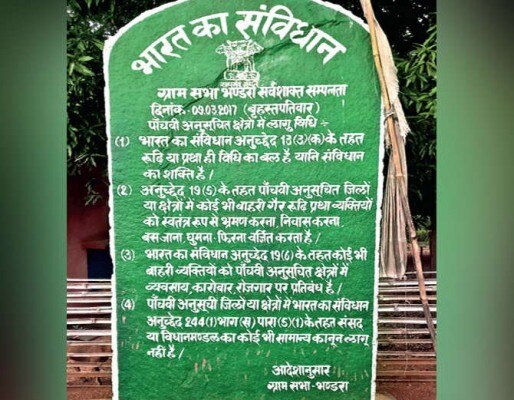 भारत का संविधान
ग्राम सभा भण्डरा सर्वशक्ति सम्पन्नता
दिनांक - 09.03.2017 (बृहस्तपतिवार)
पाँचवी अनुसूचित क्षेत्रों में लागू विधि ÷
(1) भारत का संविधान अनुच्छेद 13(3)(क) के तहत
रूढ़ि या प्रथा ही विधि का बल है, यानि संविधान
का शक्ति है /
(2) अनुच्छेद 19(5) के तहत पाँचवी अनुसूचित जिलो
या क्षेत्रों में कोई भी बाहरी गैर रूढ़ि प्रथा व्यक्तियों
को स्वतंत्र रूप से भ्रमण करना, निवास करना,
बस जाना, घुमना-फिरना वर्जित करता है /
(3) भारत का संविधान अनुच्छेद 19(6) के तहत कोई भी
बाहरी व्यक्तियों को पाँचवी अनुसूचित क्षेत्रों में
व्यवसाय, कारोबार, रोजगार पर प्रतिबंध है /
(4) पाँचवी अनुसूची जिलों या क्षेत्रों में भारत का संविधान
अनुच्छेद 244(1) भाग (स) पारा (5)(1) के तहत संसद
या विधानमण्डल का कोई भी सामान्य कानून लागू
नहीं है /
आदेशानुसार
ग्राम सभा - भण्डरा